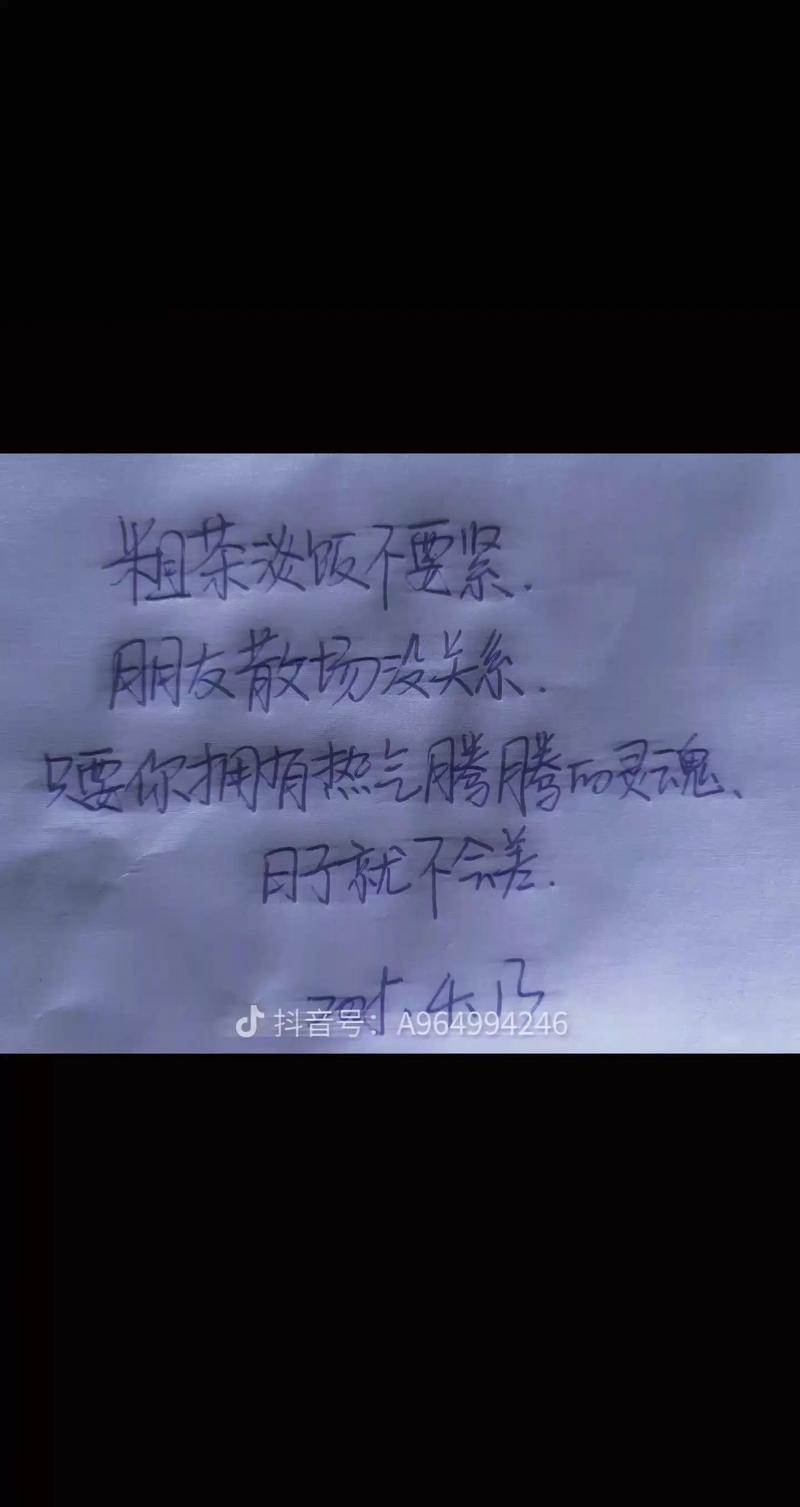 粗茶淡饭不要紧.
朋友散场没关系.
只要你拥有热气腾腾的灵魂、
日子就不会差.
抖音号: A964994246